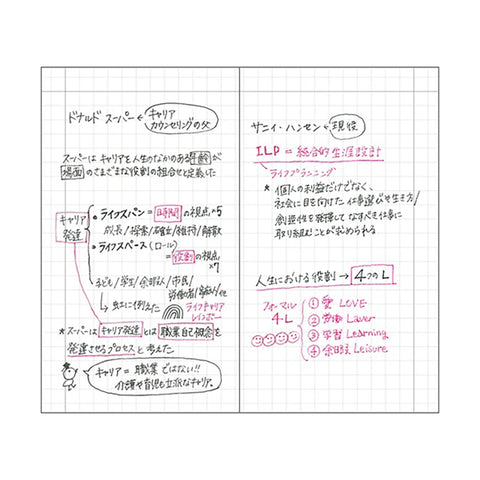 ドナルド スーパー ← キャリア
カウンセリングの父
スーパーは キャリアを人生のなかのある年齢が
場面のさまざまな役割の組合せと定義した
キャリア
発達
・ライフスパン = 時間 の視点 ×5
成長/探索/確立/維持/解放
・ライフスペース(ロール)
= 役割 の視点
×7
子ども/学生/余暇人/市民/
労働者/ /他
→虹に例えた
ライフキャリア
レインボー
* スーパーは キャリア発達 とは 職業自己概念 を
発達させるプロセス と考えた
キャリア = 職業 ではない!!
介護や育児も立派なキャリア。
サニィ・ハンセン ← 現役
ILP = 統合的生涯設計
ライフプランニング
* 個人の利益だけでなく、
社会に目を向けた仕事選びや生き方/
創造性を発揮して なすべき仕事に
取り組むことが求められる
人生における役割 → 4つのL
フォーマル
4-L
① 愛 LOVE
② 労働 Laver
③ 学習 Learning
④ 余暇 Leisure